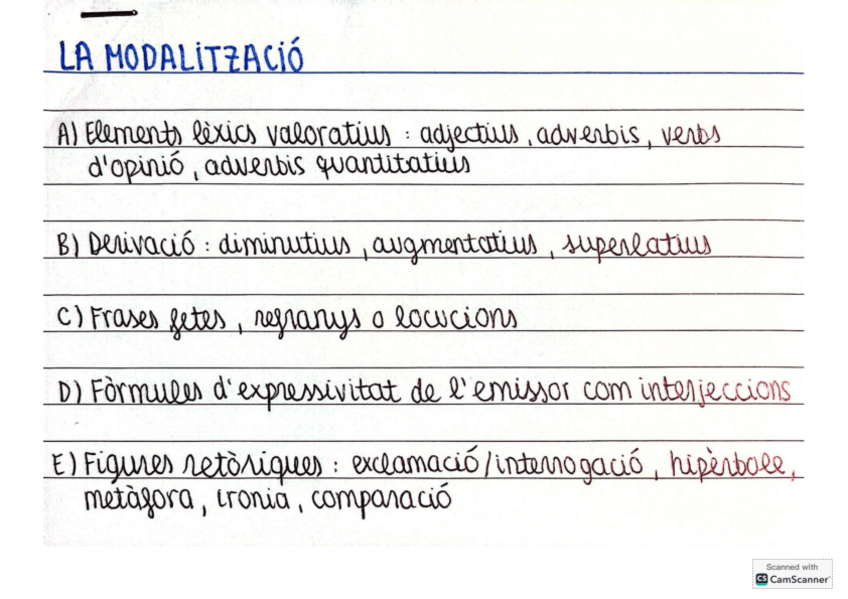 LA MODALITZACIÓ
A) Elements lèxics valoratius : adjectius, adverbis, verbs
d'opinió, adverbis quantitatius
B) Derivació : diminutius, augmentatius, superlatius
C) Frases fetes, refranys o locucions
D) Fòrmules d'expressivitat de l'emissor com interjeccions
E) Figures retòriques : exclamació/interrogació, hipèrbole,
metàfora, ironia, comparació
Scanned with
CS CamScanner